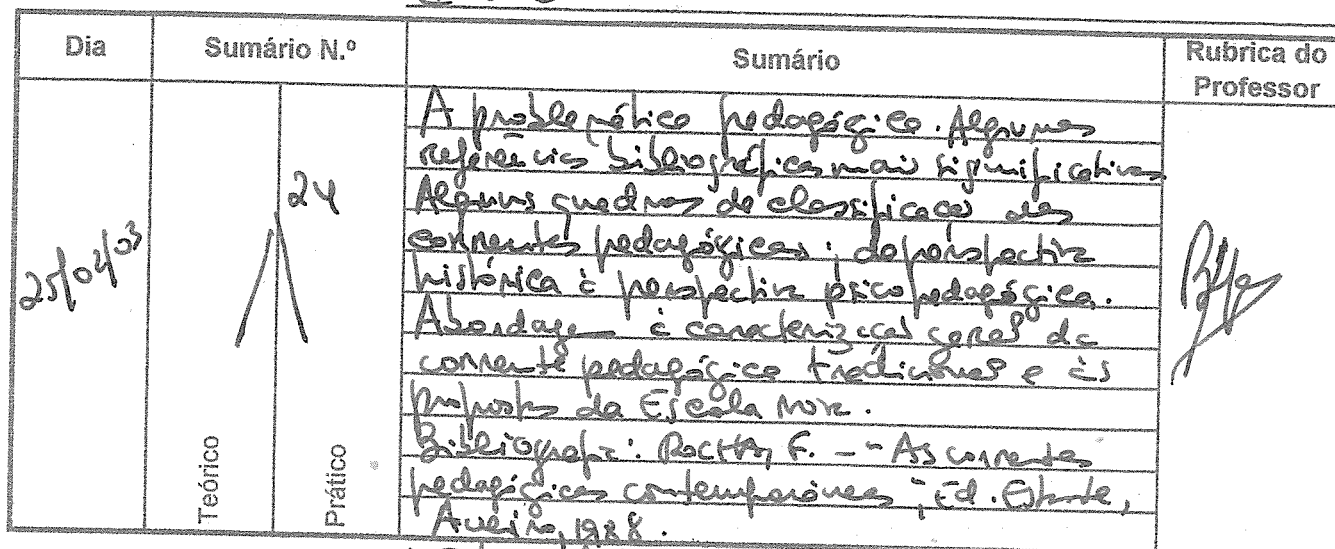 Dia Sumário N.º Sumário Rubrica do Professor
25/02/03
24
Teórico
Prático
A problemática pedagógica. Algumas
referências bibliográficas mais significativas
Alguns quadros de classificação das
correntes pedagógicas: da perspectiva
histórica à perspectiva psicopedagógica.
Abordagem à caracterização geral da
corrente pedagógica tradicional e às
propostas da Escola Nova.
Bibliografia: ROCHA, F. - "As correntes
pedagógicas contemporâneas", Ed. Estante,
Aveiro, 1988.